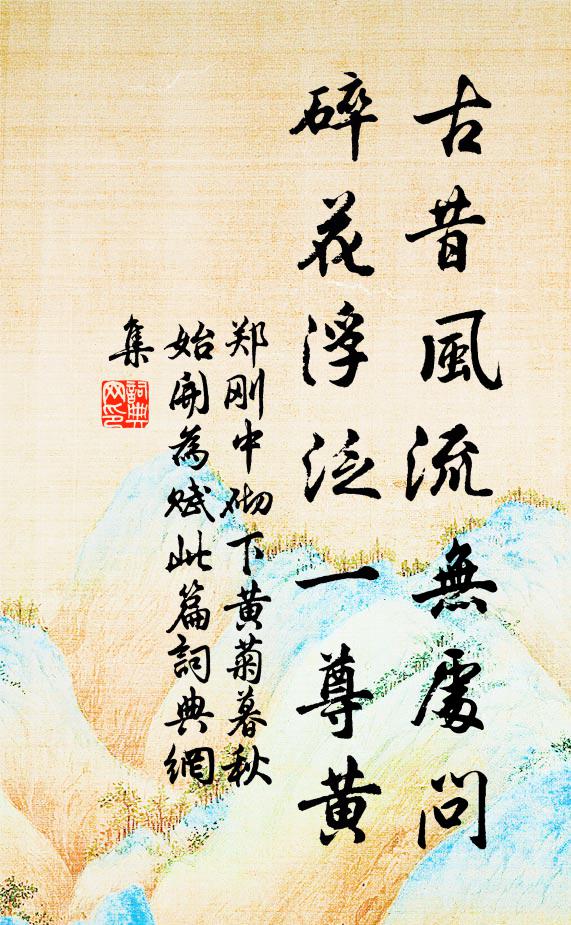 古昔風流無處問
碎花浮泛一尊黄
郑刚中砌下黄菊暮秋
始開為赋此篇詞典網
集
詞典网印